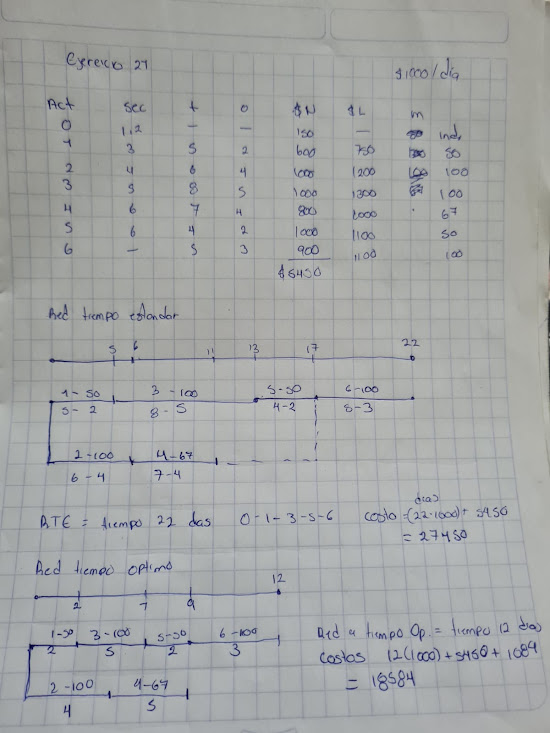 Ejercicio 21
$1000/dia
Act sec t o $N $L m
0 1,2 — — 150 — ind.
1 3 5 2 600 750 50
2 4 6 4 1000 1200 100
3 5 8 5 1000 1300 100
4 6 7 4 800 1000 67
5 6 4 2 1000 1100 50
6 — 5 3 900 1100 100
$5450
Red tiempo estandar
5 6 11 13 17 22
1-50 3-100 5-50 6-100
5-2 8-5 4-2 5-3
2-100 4-67
6-4 7-4
RTE = tiempo 22 das 0-1-3-5-6 costo =(22·1000)+ 5450
dias
= 27450
Red tiempo optimo
2 7 9 12
1-50 3-100 5-50 6-100
2 5 2 3
2-100 4-67
4 5
Red a tiempo Op. = tiempo 12 dias
costos 12(1000)+5450+1084
= 18584